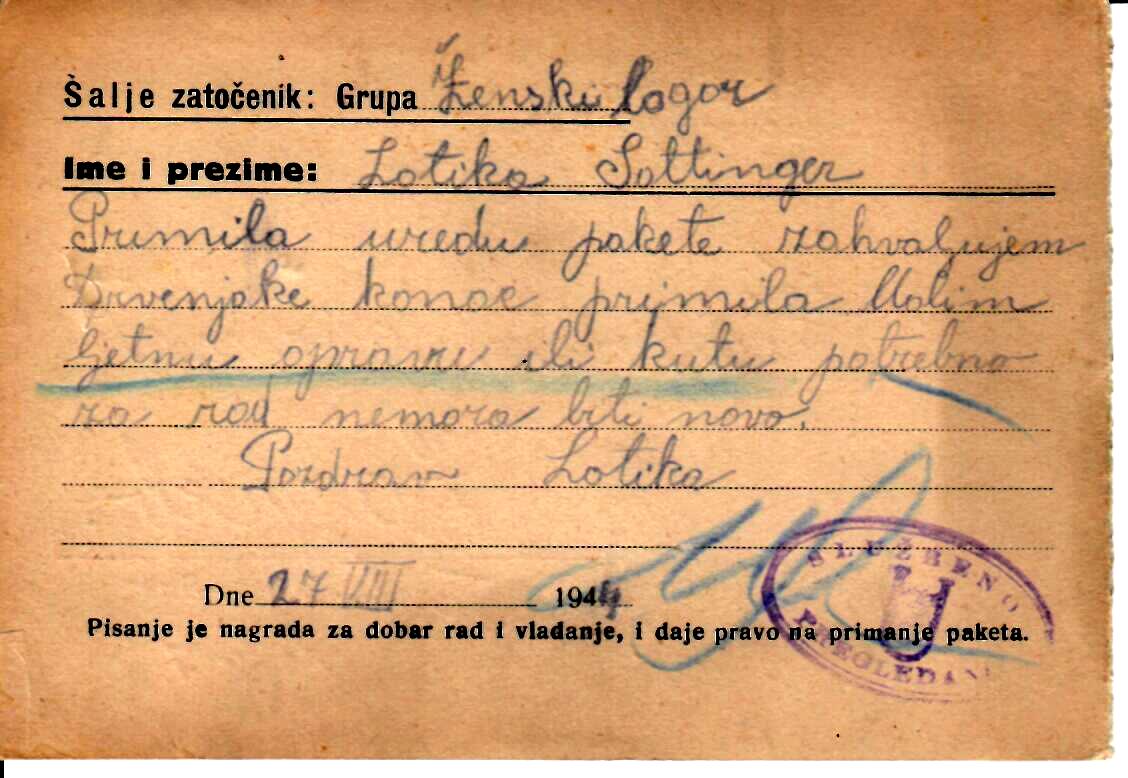 Šalje zatočenik: Grupa Ženski logor
Ime i prezime: Lotika Sottinger
Primila uredu pakete zahvaljujem
Drvenjake konac primila Molim
ljetnu opravu ili kutu potrebno
za rad nemora biti novo.
Pozdrav Lotika
Dne 27 VIII 1944
Pisanje je nagrada za dobar rad i vladanje, i daje pravo na primanje paketa.
SLUŽBENO
U
PREGLEDANO